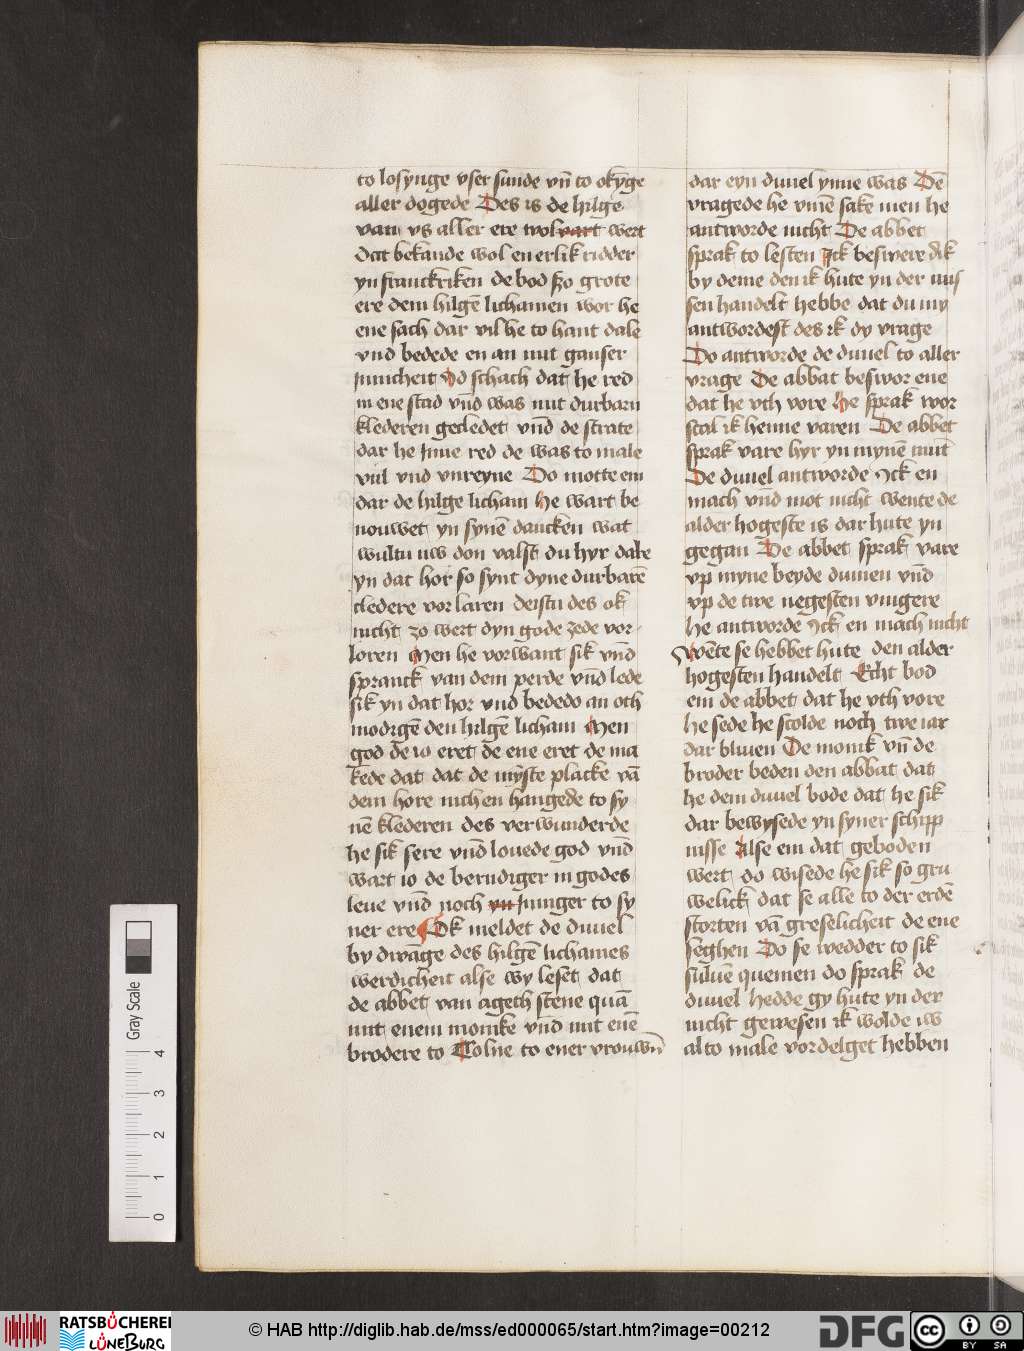 to losynge vser sunde vn̄ to okȳge
aller dogede Des is de hilge
van vs aller ere wolvart wert
Dat bekande wol en erlik ridder
yn franckriken de bod szo grote
ere dem hilgē lichamen wor he
ene sach dar vil he to hant dale
vnd bedede en an mit ganser
jnnicheit Vd schach dat he red
in ene stad vn̄d was mit durbarn
klederen gecledet vn̄d de strate
dar he jnne red de was to male
vul vnd vnreyne Do motte em
dar de hilge licham He wart be
nouwet yn synē dancken wat
wultu nw don valst du hyr dale
yn dat hor so synt dyne durbarē
cledere vorlaren deistu des ok
nicht zo wert dyn gode zede vor
loren Men he vorwant sik vn̄d
spranck van dem perde vn̄d lede
sik yn dat hor vnd bededo an oth
modigē den hilgē licham Men
god de io eret de ene eret de ma
kede dat dat de mȳste placke vā
dem hore nich en hangede to sy
nē klederen des verwunderde
he sik sere vn̄d louede god vn̄d
wart io de berndiger in godes
leue vn̄d noch vn jnniger to sy
ner ere Ok meldet de duuel
by dwāge des hilgē lichames
werdicheit alse wy leset dat
de abbet van agech stene quā
mit enem monike vn̄d mit enē
brodere to Colne to ener vrouwn̄
dar eyn duuel ynne was Dē
vragede he vmē sake men he
antworde nicht De abbet
sprak to lesten Jck beswere dik
by deme den ik hute yn der mis
sen handelt hebbe dat du my
antwordest des ik dy vrage
Do antworde de duuel to aller
vrage De abbat beswor ene
dat he vth vore He sprak wor
scal ik henne varen De abbet
sprak vare hyr yn mynē mūt
De duuel antworde Jck en
mach vn̄d mot nicht wente de
alder hogeste is dar hute yn
gegan De abbet sprak vare
vp myne beyde dumen vn̄d
vp de twe negesten vingere
he antworde Jck en mach nicht
Wēte se hebbet hute den alder
hogesten handelt Echt bod
em de abbet dat he vth vore
he sede he scolde noch twe iar
dar bliuen De monik vn̄ de
broder beden den abbat dat
he dem duuel bode dat he sik
dar bewysede yn syner schipp
nisse Alse em dat geboden
wert do wisede he sik so gru
welick dat se alle to der erdē
storten vā greselicheit de ene
seghen Do se wedder to sik
suluē quemen do sprak de
duuel hedde gy hute yn der
nicht gewesen ik wolde iw
alto male vordelget hebben
Gray Scale
0 1 2 3 4
RATSBÜCHEREI
LÜNEBURG
© HAB http://diglib.hab.de/mss/ed000065/start.htm?image=00212
DFG
cc BY SA